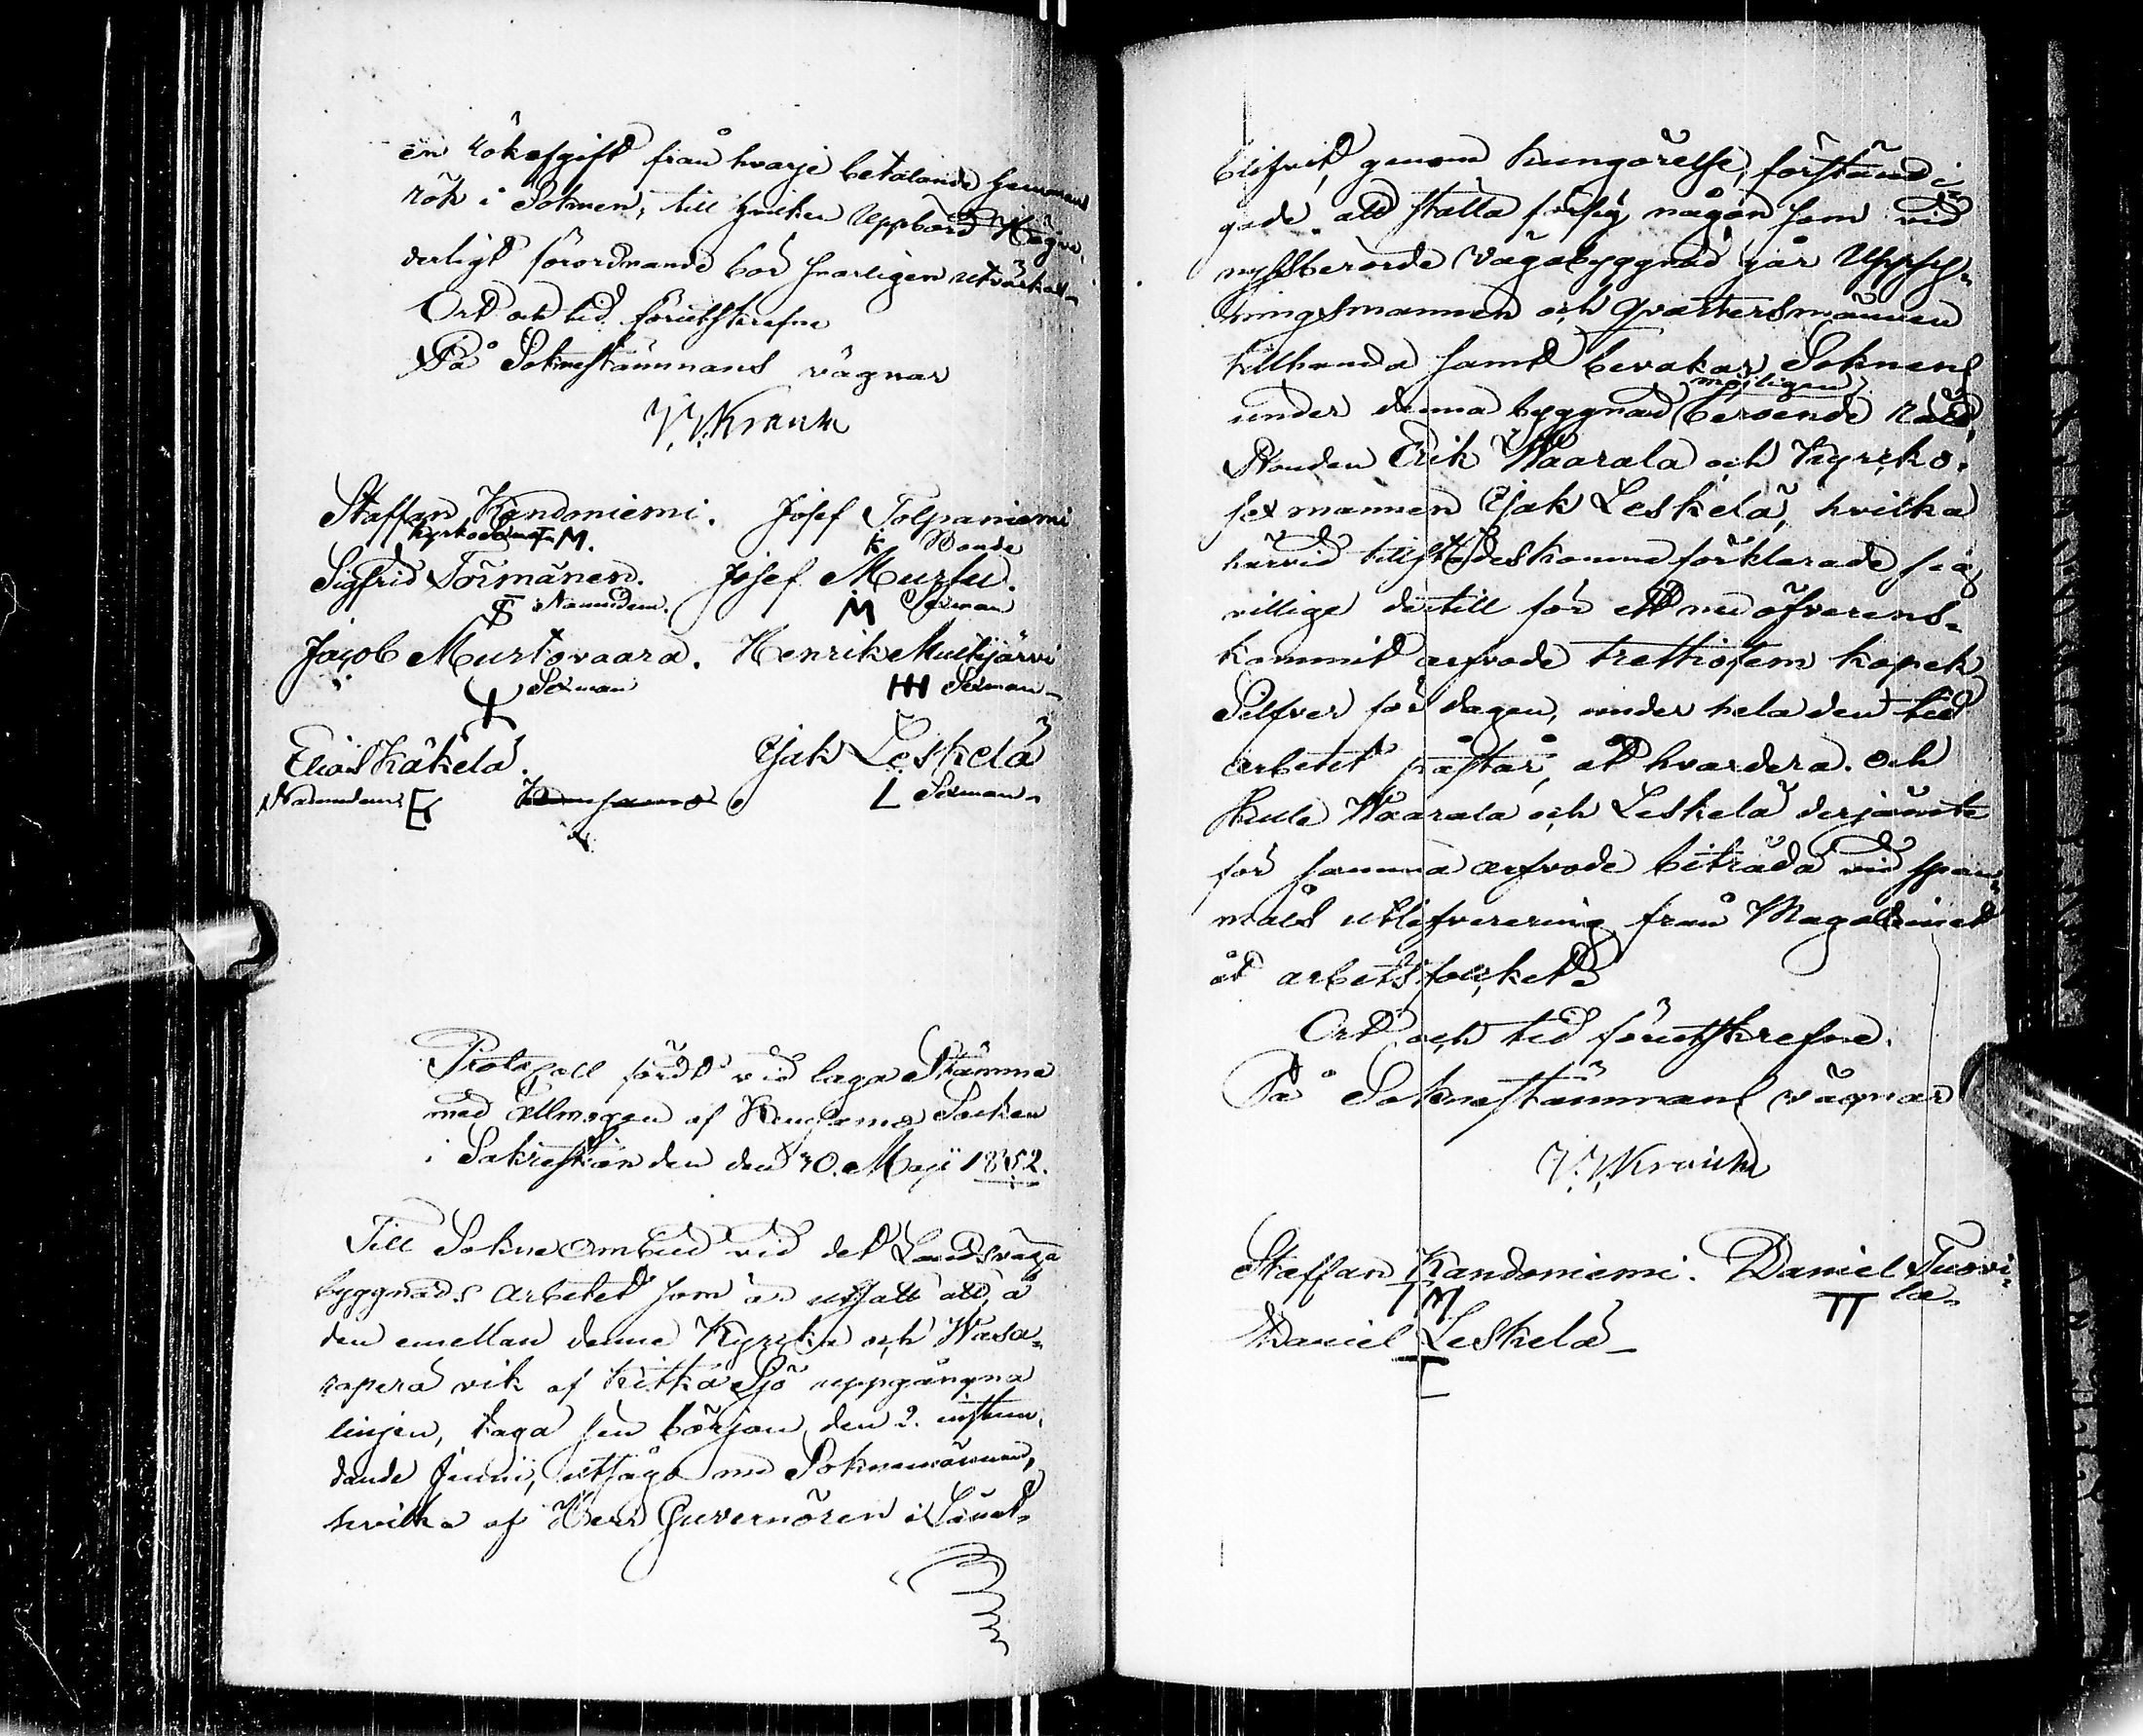 en rökafgift från hvarje betalande hemmans
rök i Soknen; till hvilken Uppbörd Högvör¬
derligt förordnande bör snarligen utvärkas.
Ort och tid förutskrefne
På Soknestämmans vägnar
V. V. Kranck
Staffan Kandoniemi. Josef Tolpaniemi
Kyrkovärd TM. K Bonde
Sigfrid Törmänen. Josef Murtu.
S Nämndem. M Sexman
Jacob Murtovaara. Henrik Mustijärvi
Sexman HH Sexman
Elias Käkelä. Isak Leskelä
Nämndem. E L Sexman
Protocoll fördt vid laga Stämma
med Allmogen af Kuusamo Socken
i Sakrestian den 30. Maji 1852.
Till Sokne Ombud vid det Landsvägs
byggnads Arbetet som är utsatt att, å
den emellan denne Kyrcka och Wasa¬
raperä vik af Kitka Sjö uppgångna
linjen, taga sen början den 2. instun¬
dande Junii, utsågo nu Soknemännen,
hvilka af Herr Guvernören i Länet
blifvit, genom kungörelse, förständi¬
gade att ställa för sig någon som vid
nyssberörde vägabyggnad går Uppsy¬
ningsmannen och Qvartersmännen
tillhanda samt bevakar Soknens
möjligen
under denna byggnad beroende rätt,
Bonden Erik Waarala och Kyrcko¬
sexmannen Isak Leskelä, hvilka
härvid tillstädeskomne förklarade sig
villige dertill för ett nu öfverens¬
kommit arfvode trettiofem kopek
Silfver för dagen, under hela den tid
arbetet påstår, åt hvardera. Och
skule Waarala och Leskelä derjämte
för samma arfvode biträda vid span¬
måls utlefverering från Magasinet
åt arbetsfolcket.
Ort och tid förutskrefne.
På Soknestämmans vägnar
V. V. Kranck
Staffan Kandoniemi. Daniel Tuovi¬
TM TT la.
Daniel Leskelä